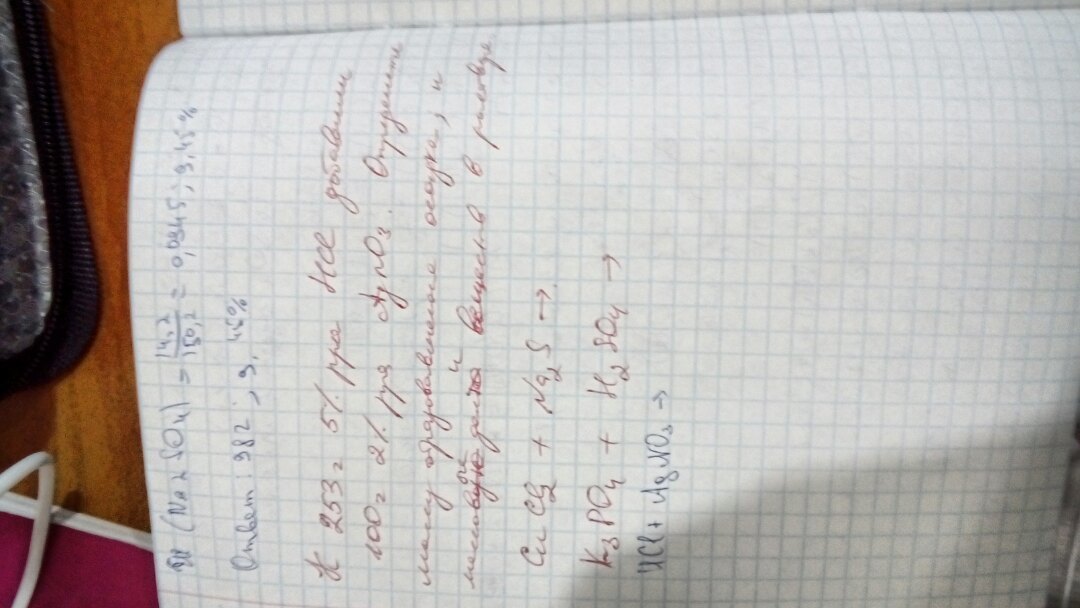 ω (Na₂SO₄) = 14,2/150,2 = 0,0945; 9,45%
Ответ: 98г; 9,45%
К 253г 5% р-ра HCl добавили
100г 2% р-ра AgNO₃. Определите
массу образовавшегося осадка, и
массовые доли веществ в растворе.
CuCl₂ + Na₂S →
K₃PO₄ + H₂SO₄ →
HCl + AgNO₃ →